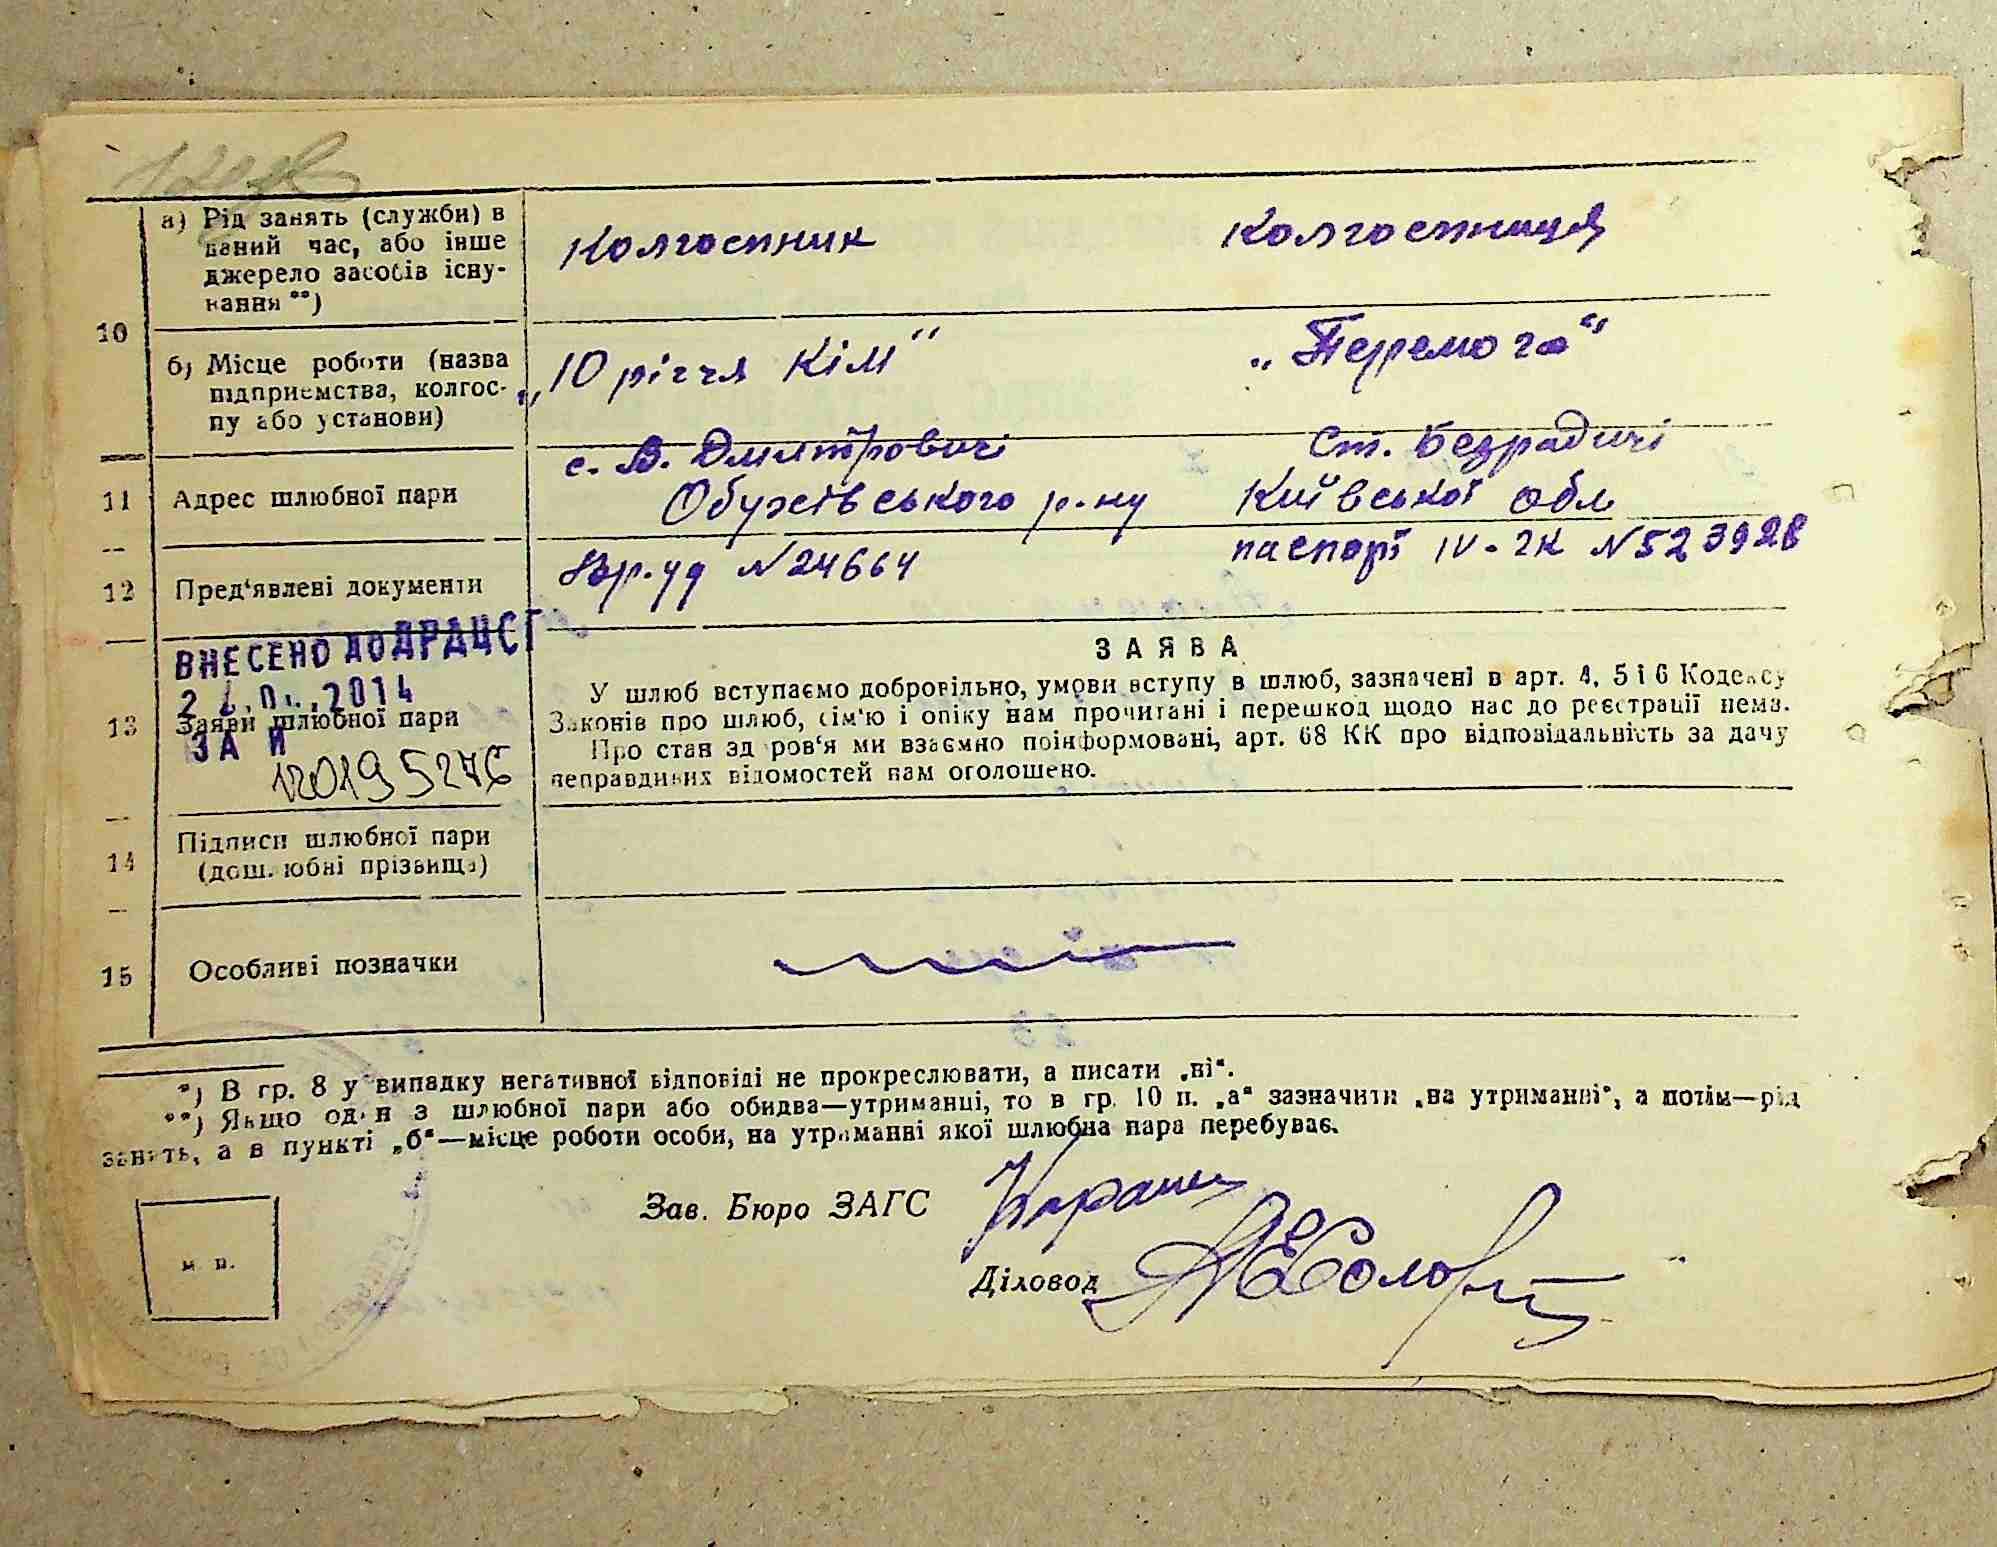 10
а) Рід занять (служби) в
даний час, або інше
джерело засобів існу-
вання **)
Колгоспник
Колгоспниця
б) Місце роботи (назва
підприємства, колгос-
пу або установи)
„10 річчя Кім"
„Перемога"
11
Адрес шлюбної пари
с. В. Дмитровичі
Обухівського р-ну
Ст. Безрадичі
Київської обл
12
Пред'явлені документи
Вр.уд N 24664
паспорт IV-ЧК N 523928
ВНЕСЕНО ДО ДРАЦСГ
2014
ЗА №
120195276
13
Заяви шлюбної пари
ЗАЯВА
У шлюб вступаємо добровільно, умови вступу в шлюб, зазначені в арт. 4, 5 і 6 Кодексу
Законів про шлюб, сім'ю і опіку нам прочитані і перешкод щодо нас до реєстрації нема.
Про стан здоров'я ми взаємно поінформовані, арт. 68 КК про відповідальність за дачу
неправдивих відомостей нам оголошено.
14
Підписи шлюбної пари
(дошлюбні прізвища)
15
Особливі позначки
*) В гр. 8 у випадку негативної відповіді не прокреслювати, а писати „ні".
**) Якщо один з шлюбної пари або обидва—утриманці, то в гр. 10 п. „а" зазначити „на утриманні", а потім—рід
занять, а в пункті „б"—місце роботи особи, на утриманні якої шлюбна пара перебуває.
м. п.
Зав. Бюро ЗАГС
Діловод